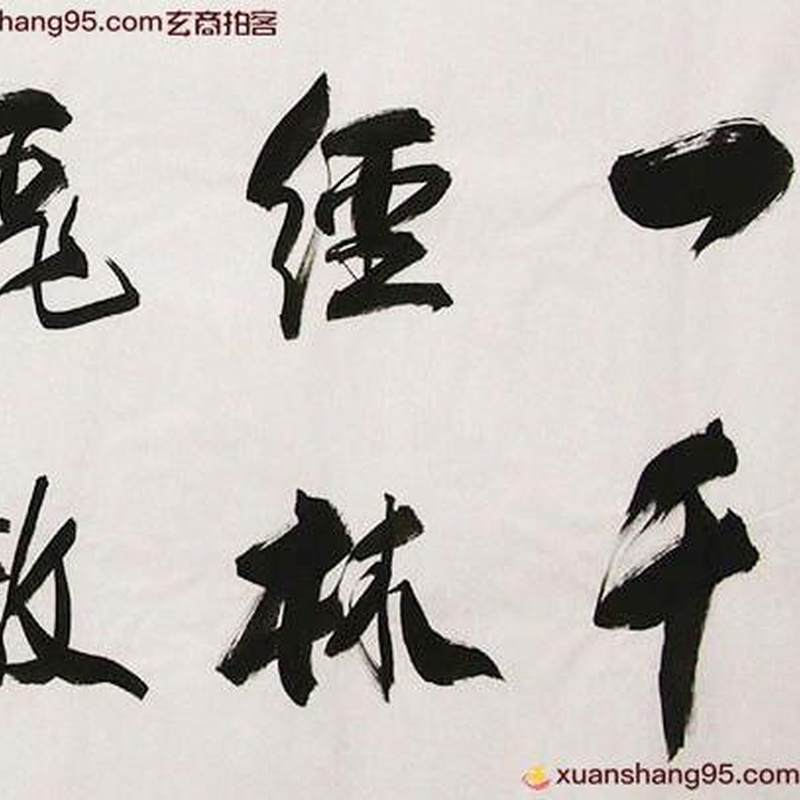 hang95.com玄商拍客
一千
徑林
xuanshang95.com